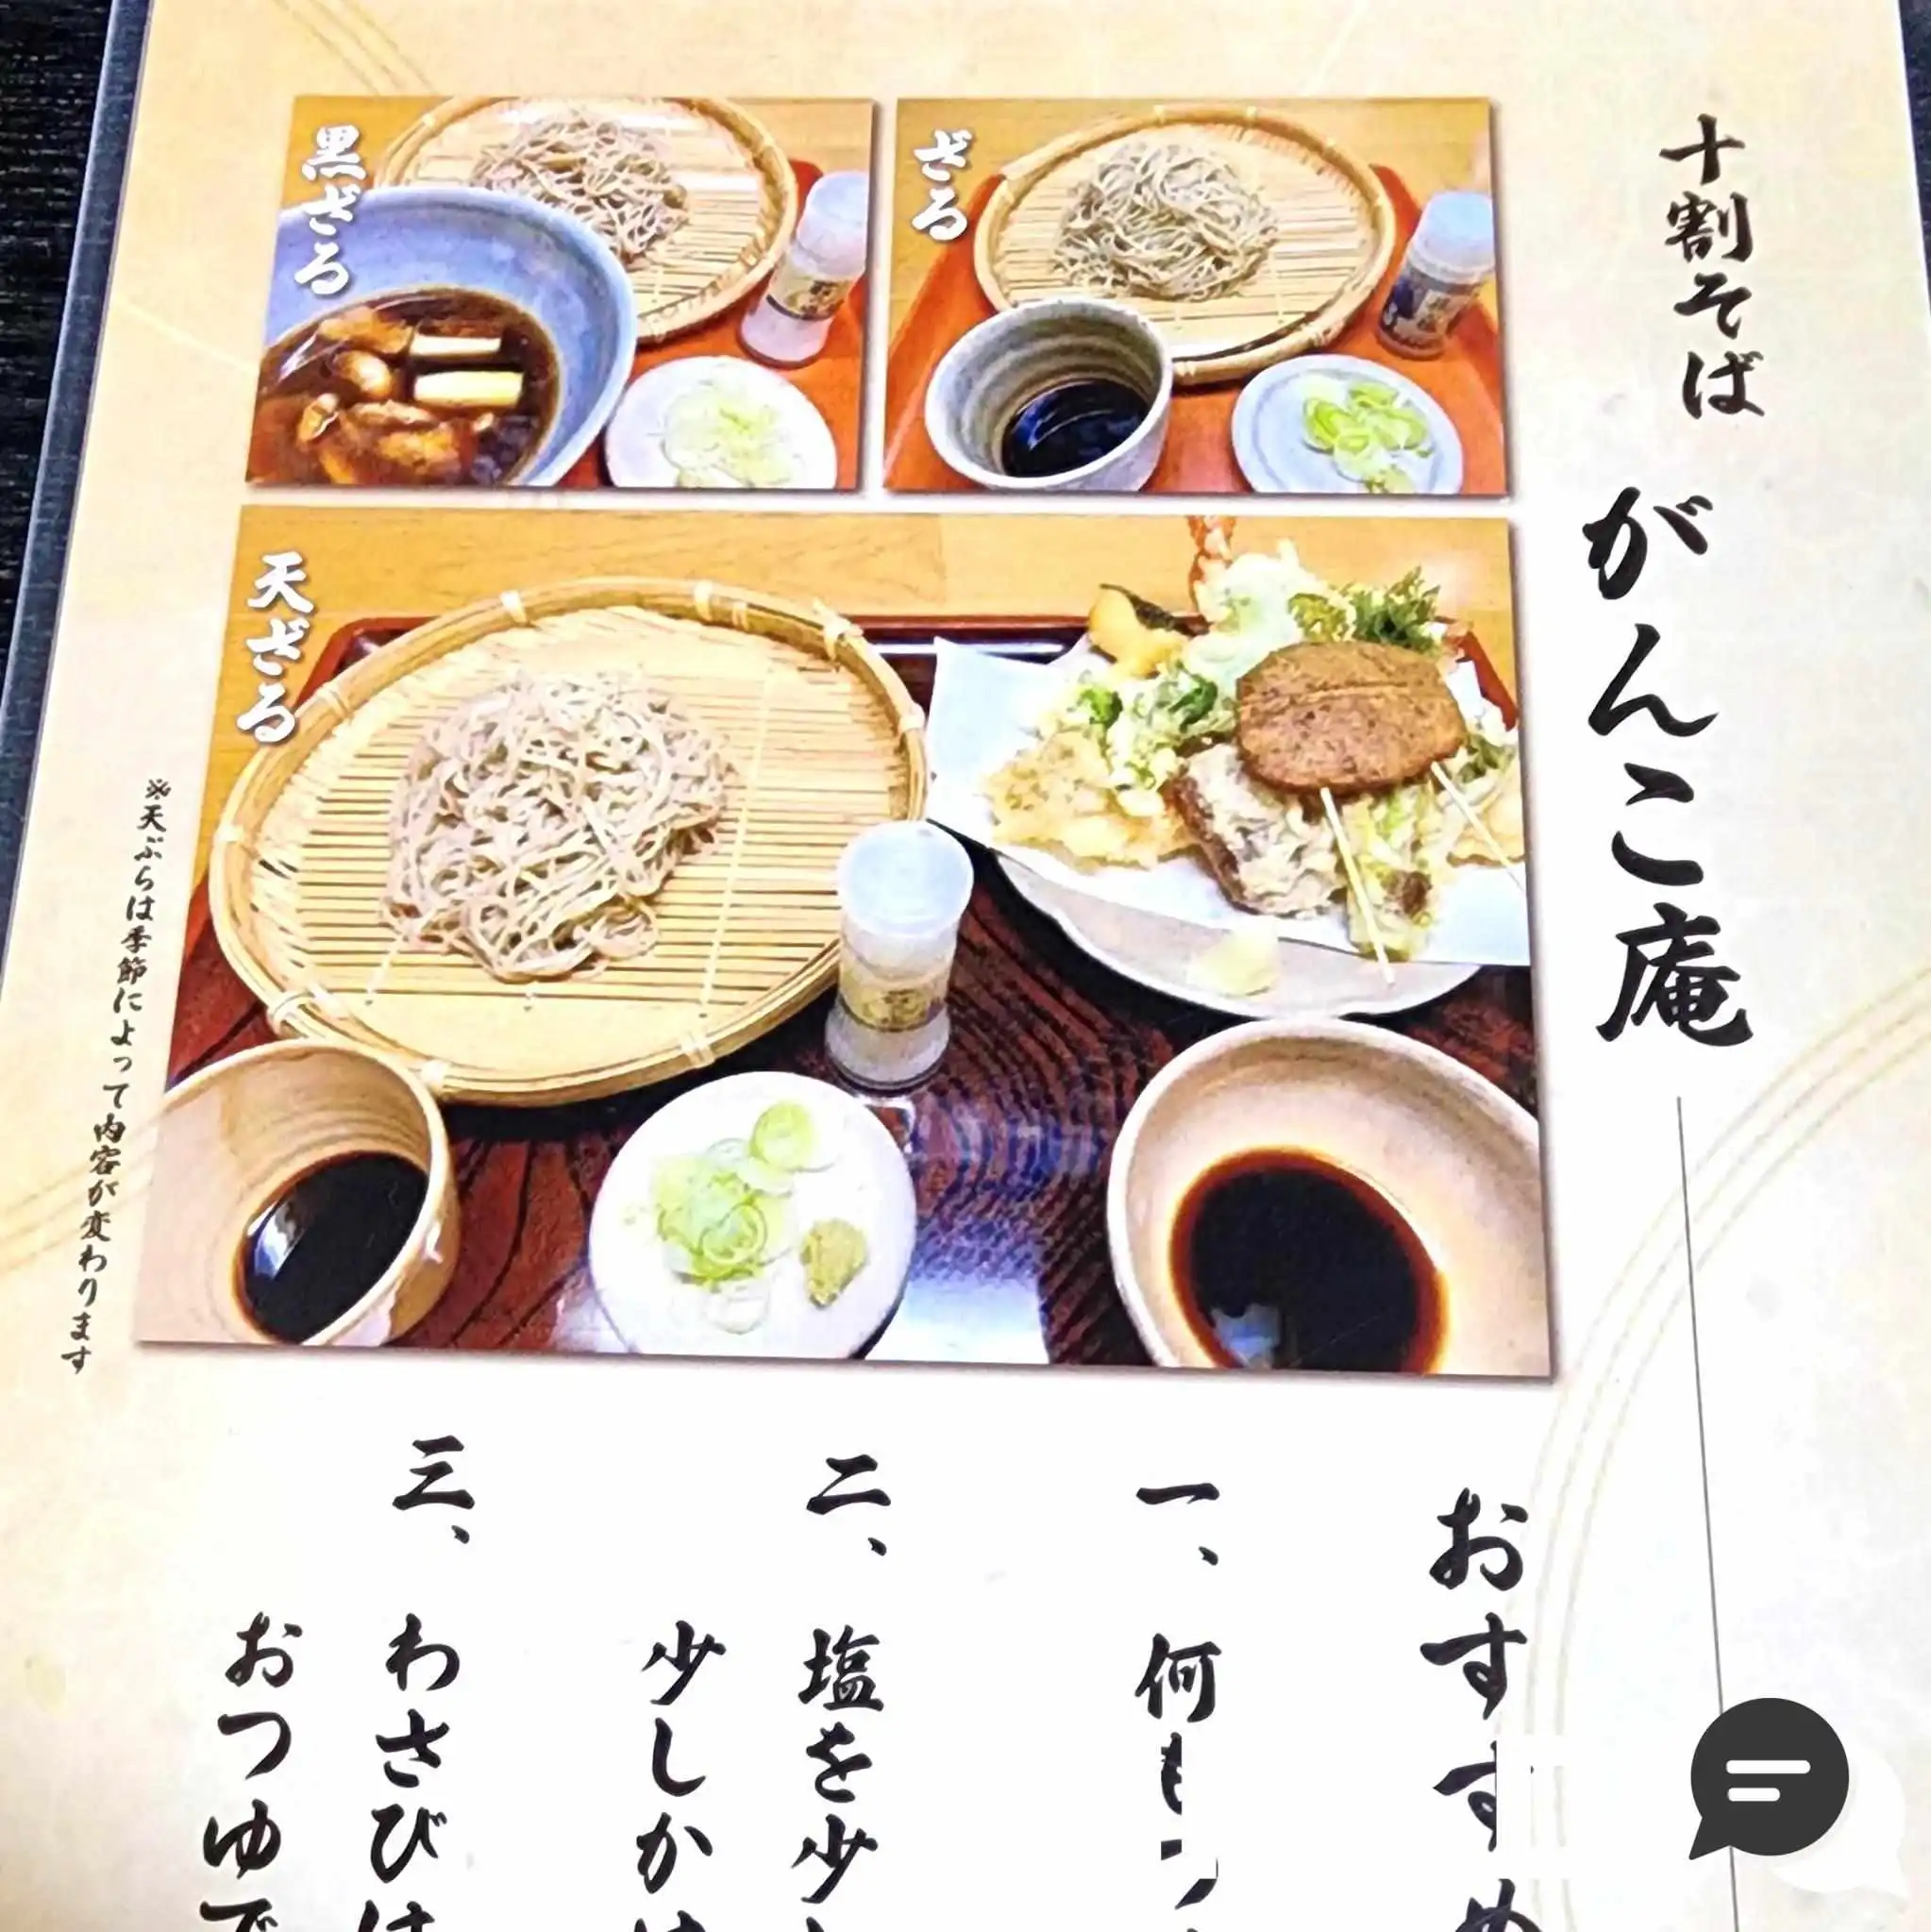 十割そば
がんこ庵
ざる
黒ざる
天ざる
※天ぷらは季節によって内容が変わります
おすすめ
一、何も
二、塩を少し
少しかけ
三、わさびは
おつゆで